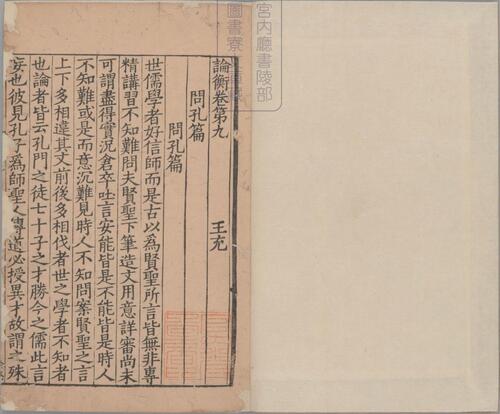 論衡卷第九
王充
問孔篇
問孔篇
世儒學者好信師而是古以爲賢聖所言皆無非專
精講習不知難問夫賢聖下筆造文用意詳審尚未
可謂盡得實況倉卒吐言安能皆是不能皆是時人
不知難或是而意沉難見時人不知問案賢聖之言
上下多相違其文前後多相伐者世之學者不知者
也論者皆云孔門之徒七十子之才勝今之儒此言
妄也彼見孔子爲師聖人傳道必授異才故謂之殊
宮内廳書陵部
圖書寮